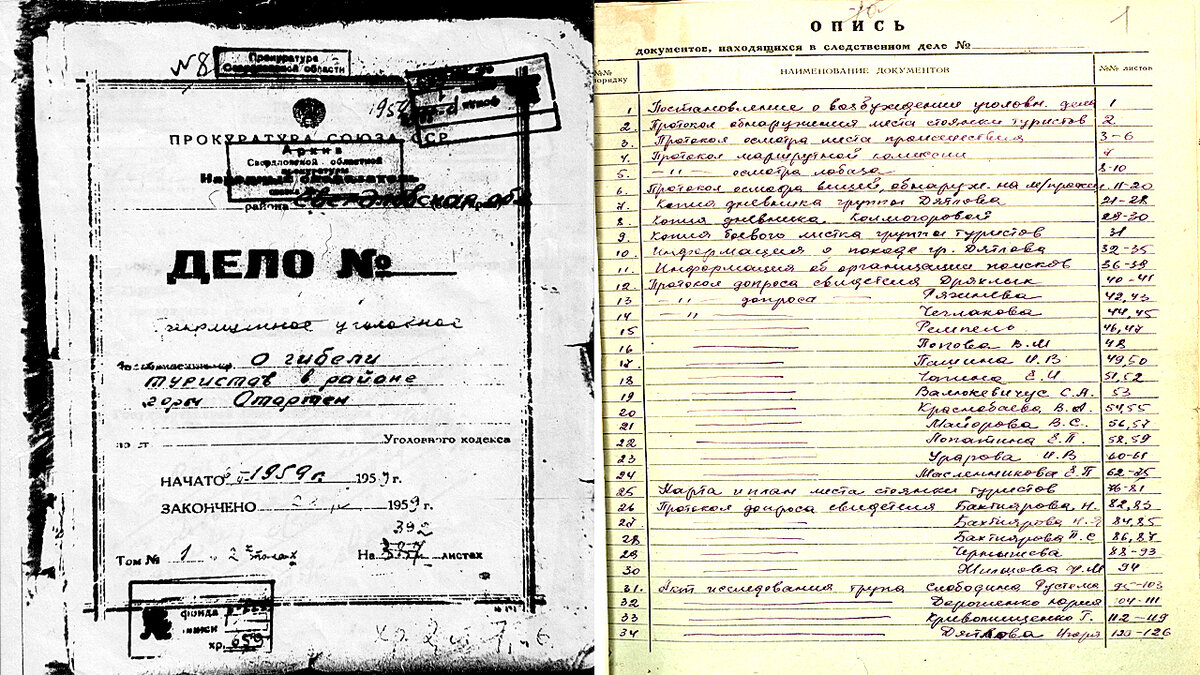 № 8
Прокуратура
Свердловской области
1959
ПРОКУРАТУРА СОЮЗА ССР
Архив
Свердловской областной
прокуратуры
Народный следователь
района Свердловская обл
ДЕЛО №
уголовное
О гибели
туристов в районе
горы Отортен
по ст Уголовного кодекса
НАЧАТО 1959г. 1959 г.
ЗАКОНЧЕНО 1959 г.
392
Том № 1 в 2х томах На 387 листах
фонда
описи
хр. 659
ОПИСЬ
1
документов, находящихся в следственном деле №
№№ порядку НАИМЕНОВАНИЕ ДОКУМЕНТОВ №№ листов
1 Постановление о возбуждении уголовн. дела 1
2. Протокол обнаружения места стоянки туристов 2
3. Протокол осмотра места происшествия 3-6
4. Протокол маршрутной комиссии 7
5. -"- осмотра лабаза 8-10
6. Протокол осмотра вещей, обнаруж. на м/происш. 11-20
7. Копия дневника группы Дятлова 21-28
8. Копия дневника Колмогоровой 29-30
9. Копия боевого листка группы туристов 31
10. Информация о походе гр. Дятлова 32-35
11. Информация об организации поисков 36-39
12. Протокол допроса свидетеля Дряхлых 40-41
13 -"- допроса Ряжнева 42,43
14 -"- Чеглакова 44,45
15 Ремпель 46,47
16 Попова В.М 48
17. Пашина И.В 49,50
18 Чагина Е.И 51,52
19 Валюкевичус С.А. 53
20 Краснобаева В.А. 54,55
21 Майорова В.С. 56,57
22 Лопатина Е.П. 58,59
23 Уварова И.В 60-61
24 Масленникова Е.П 62-75
25 Карта и план места стоянки туристов 76-81
26 Протокол допроса свидетеля Бахтиярова Н. 82,83
27 Бахтиярова 84,85
28 Бахтиярова П.С 86,87
29 Чернышева 88-93
30 94
31. Акт исследования трупа Слободина Рустема 95-103
32 Дорошенко Юрия 104-111
33 Кривонищенко Г. 112-119
34 Дятлова Игоря 120-126